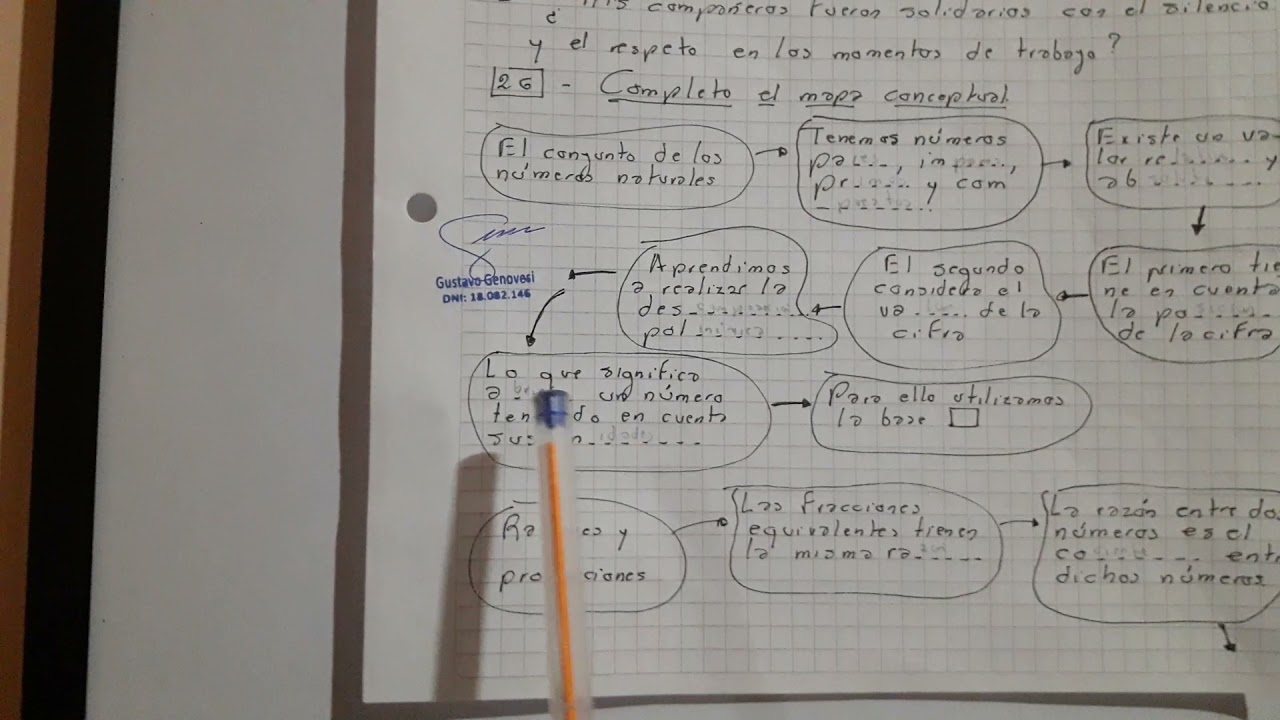 ¿ mis compañeros fueron solidarios con el silencio
y el respeto en los momentos de trabajo?
26 - Completo el mapa conceptual.
El conjunto de los
números naturales
Tenemos números
pa......, im......,
pr....... y com
.........
Existe un va
lor re........ y
ab ..........
El primero tie
ne en cuenta
la po........
de la cifra
El segundo
considera el
va ...... de la
cifra
Aprendimos
a realizar la
des............
pol ..........
Gustavo Genovesi
DNI: 18.082.146
Lo que significa
a un número
ten do en cuenta
sus
Para ello utilizamos
la base
Ra es y
pro ciones
Las fracciones
equivalentes tienen
la misma ra......
La razón entre do
números es el
co......... ent
dichos números